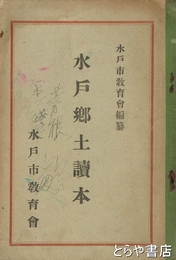 水戸市教育會編纂
水戸郷土讀本
水戸市教育會
とらや書店